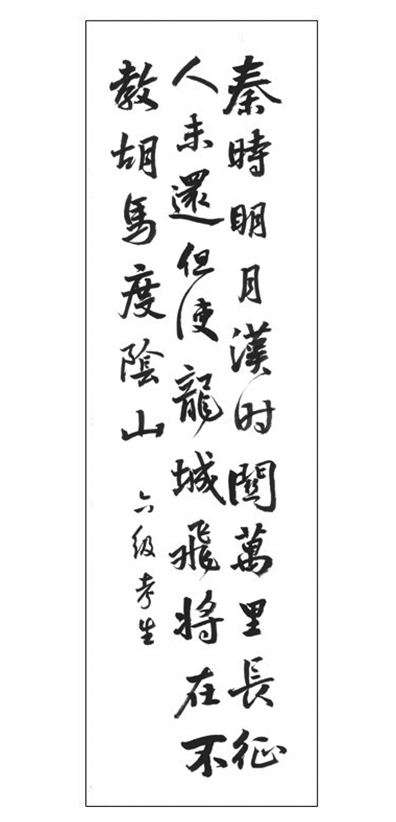 秦時明月漢时關萬里長征
人未還但使龍城飛將在不
教胡馬度陰山
六级考生